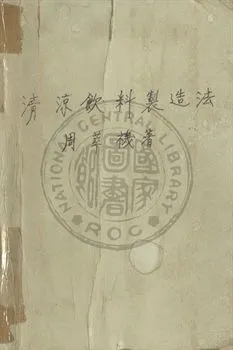 清涼飲料製造法
周萃機著
NATIONAL CENTRAL LIBRARY
國家圖書館
ROC